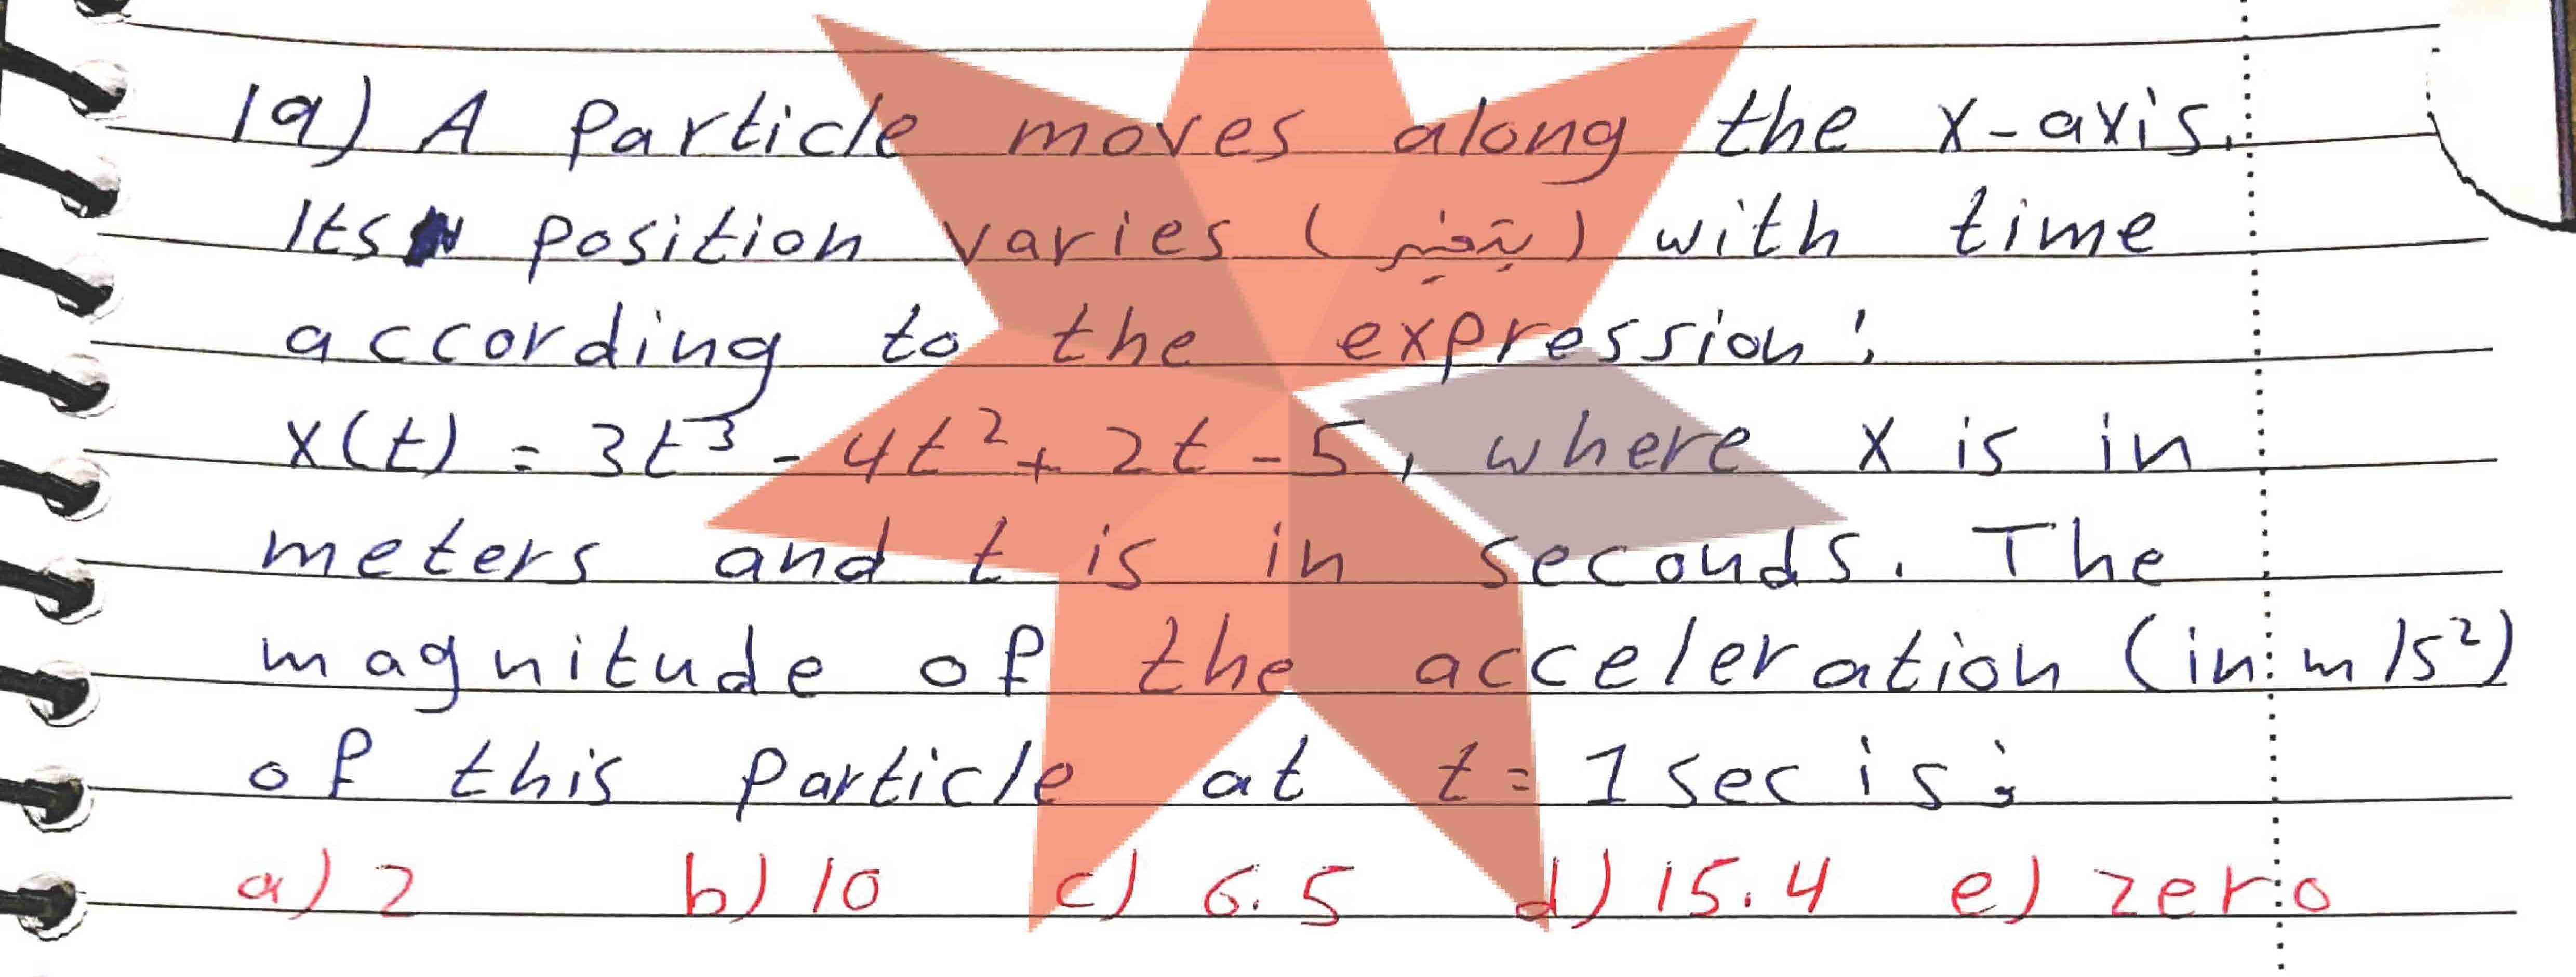 19) A particle moves along the x-axis.
Its position varies (يتغير) with time
according to the expression:
x(t) = 3t³ - 4t² + 2t - 5, where x is in
meters and t is in seconds. The
magnitude of the acceleration (in m/s²)
of this particle at t = 1 sec is:
a) 2 b) 10 c) 6.5 d) 15.4 e) zero